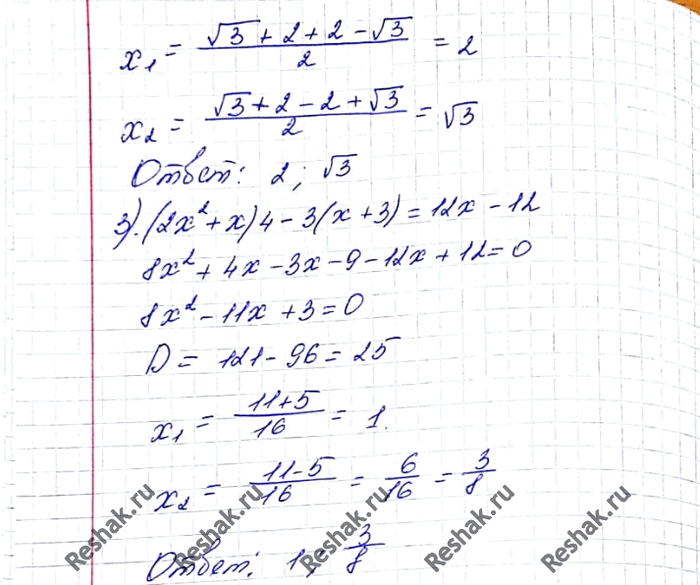 x₁ = (√3 + 2 + 2 − √3)/2 = 2
x₂ = (√3 + 2 − 2 + √3)/2 = √3
Ответ: 2; √3
3). (2x² + x)4 − 3(x + 3) = 12x − 12
8x² + 4x − 3x − 9 − 12x + 12 = 0
8x² − 11x + 3 = 0
D = 121 − 96 = 25
x₁ = (11+5)/16 = 1.
x₂ = (11−5)/16 = 6/16 = 3/8
Ответ: 1, 3/8
Reshak.ru Reshak.ru Reshak.ru Reshak.ru Reshak.ru